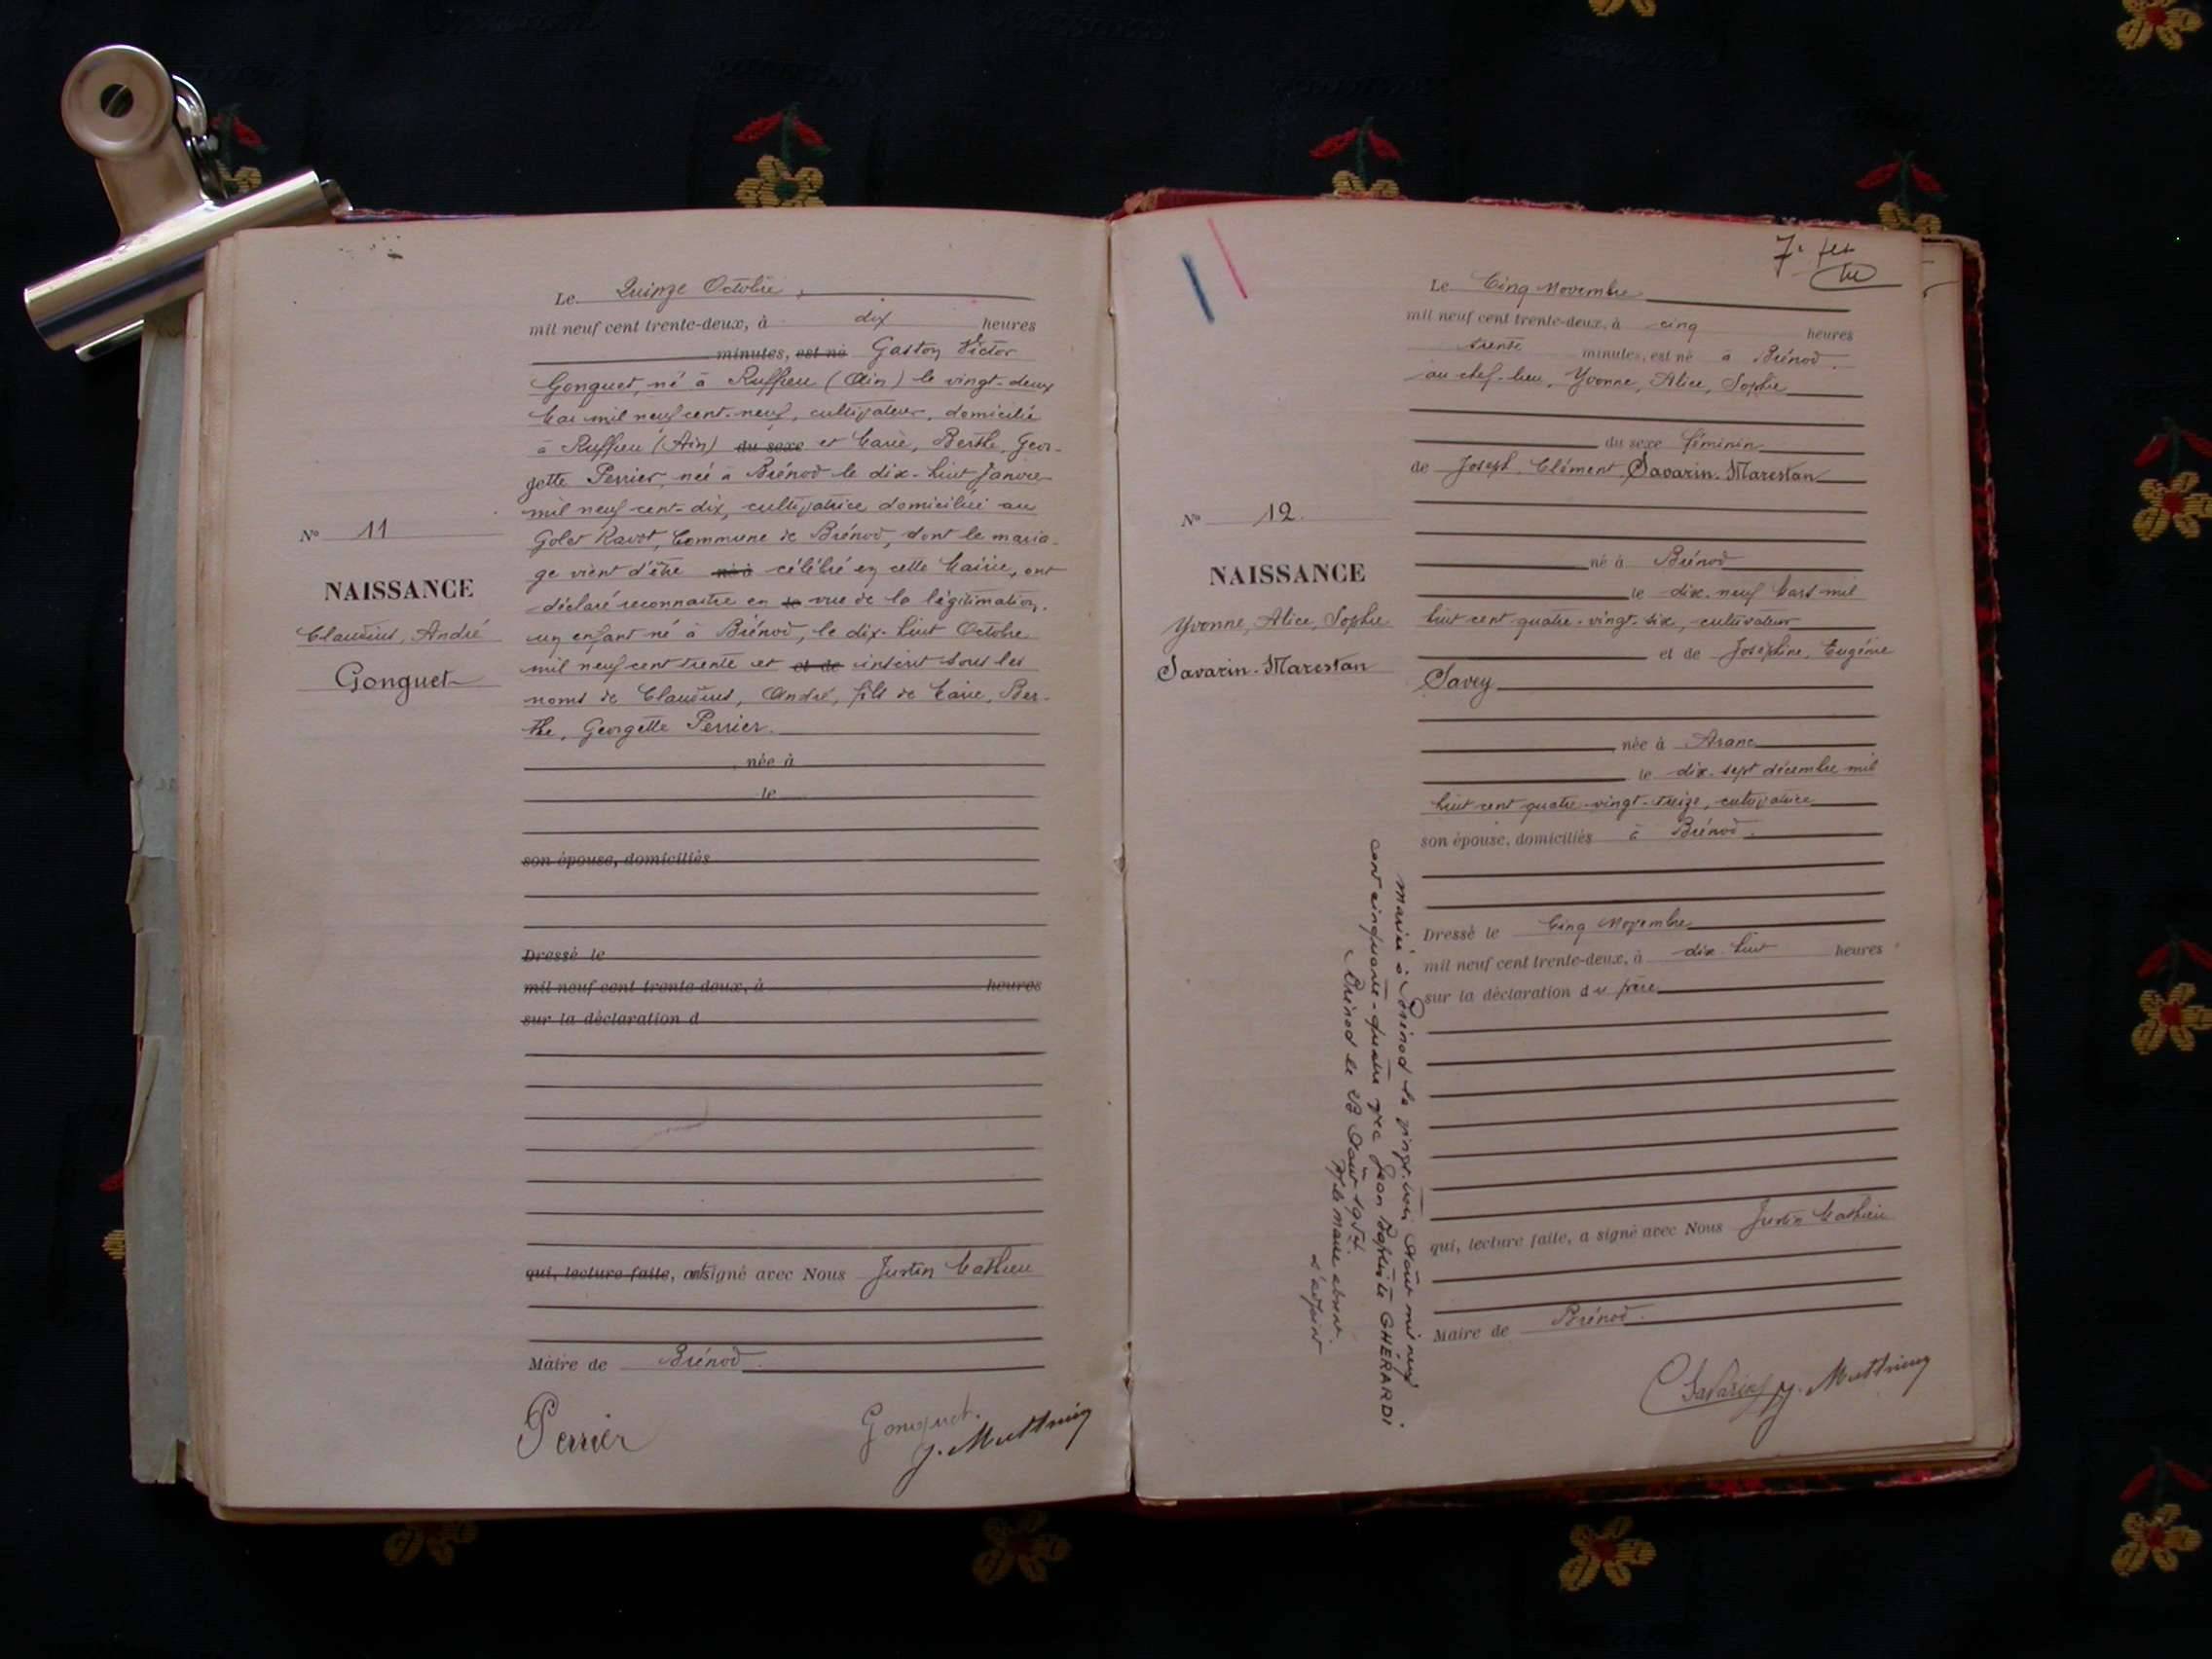 Le Quinze Octobre
mil neuf cent trente-deux, à dix heures
minutes, est né Gaston Victor
Gonguet, né à Ruffieu (Ain) le vingt-deux
Mai mil neuf cent-neuf, cultivateur, domicilié
à Ruffieu (Ain) du sexe et Marie, Berthe, Geor-
gette Perrier, née à Brénod le dix-huit Janvier
mil neuf cent-dix, cultivatrice domiciliée au
Golet Ravot, Commune de Brénod, dont le maria-
ge vient d'être né à célébré en cette Mairie, ont
déclaré reconnaître en le vue de la légitimation,
un enfant né à Brénod, le dix-huit Octobre
mil neuf cent trente et et de inscrit sous les
noms de Claudius, André, fils de Marie, Ber-
the, Georgette Perrier.
née à
le
son épouse, domiciliés
Dressé le
mil neuf cent trente-deux, à heures
sur la déclaration d
qui, lecture faite, ont signé avec Nous Justin Mathieu
Maire de Brénod.
Perrier Gonguet.
J. Matthieu
N° 11
NAISSANCE
Claudius, André
Gonguet
7e
Le Cinq Novembre
mil neuf cent trente-deux, à cinq heures
trente minutes, est né à Brénod,
au chef-lieu, Yvonne, Alice, Sophie
du sexe féminin
de Joseph, Clément Savarin-Marestan
né à Brénod
le dix-neuf Mars mil
huit cent quatre-vingt-six, cultivateur
et de Joséphine, Eugénie
Savey
née à Aranc
le dix-sept décembre mil
huit cent quatre-vingt-treize, cultivatrice
son épouse, domiciliés à Brénod.
Dressé le Cinq Novembre
mil neuf cent trente-deux, à dix-huit heures
sur la déclaration du père
qui, lecture faite, a signé avec Nous Justin Mathieu
Maire de Brénod.
C Savarin J. Matthieu
N° 12
NAISSANCE
Yvonne, Alice, Sophie
Savarin-Marestan
Mariée à Brénod le vingt-trois Août mil neuf
cent cinquante-quatre avec Jean Baptiste GHÉRARDI
Brénod le 23 Août 1954
P/ le maire absent
L'adjoint